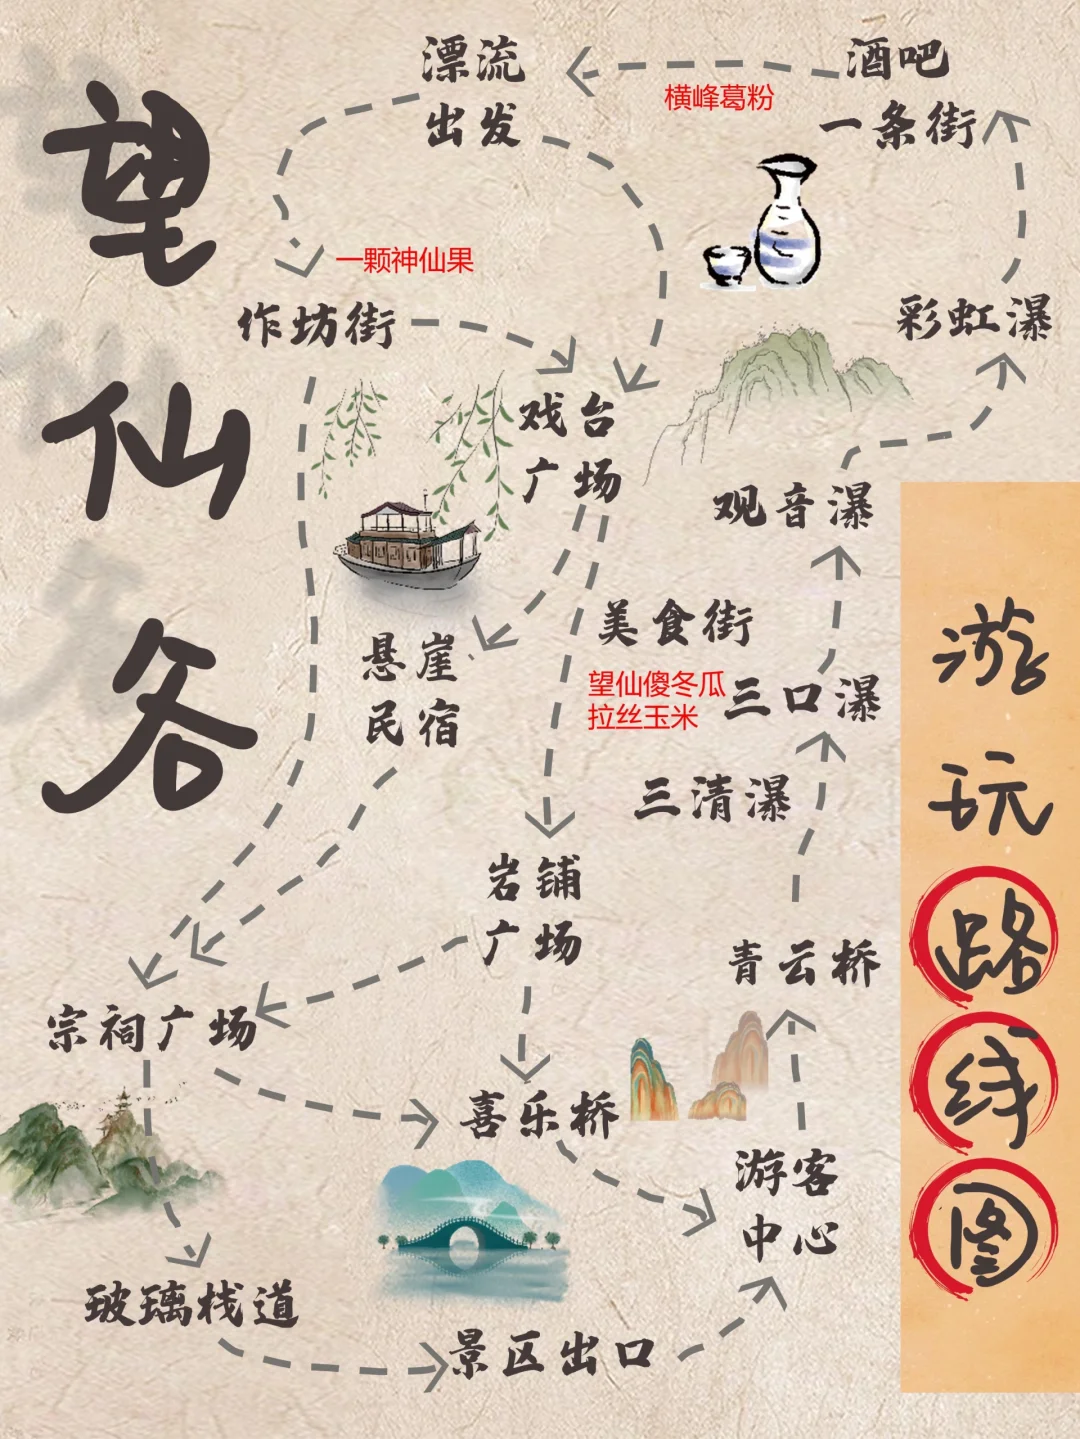 望仙谷
漂流
出发
酒吧
一条街
横峰葛粉
一颗神仙果
作坊街
彩虹瀑
戏台
广场
观音瀑
悬崖
民宿
美食街
望仙傻冬瓜
拉丝玉米
三口瀑
三清瀑
岩铺
广场
青云桥
宗祠广场
喜乐桥
游客
中心
玻璃栈道
景区出口
游玩路线图